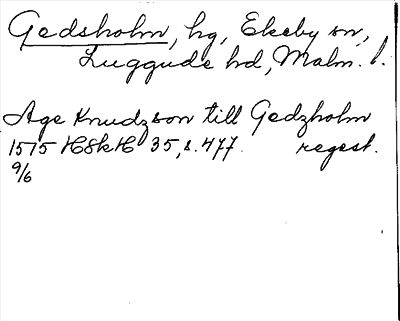 Gedsholm, hg, Ekeby sn,
Luggude hd, Malm. l.
Åge Knudzson till Gedzholm
1575 HSkH 35, s. 477. regest.
9/6